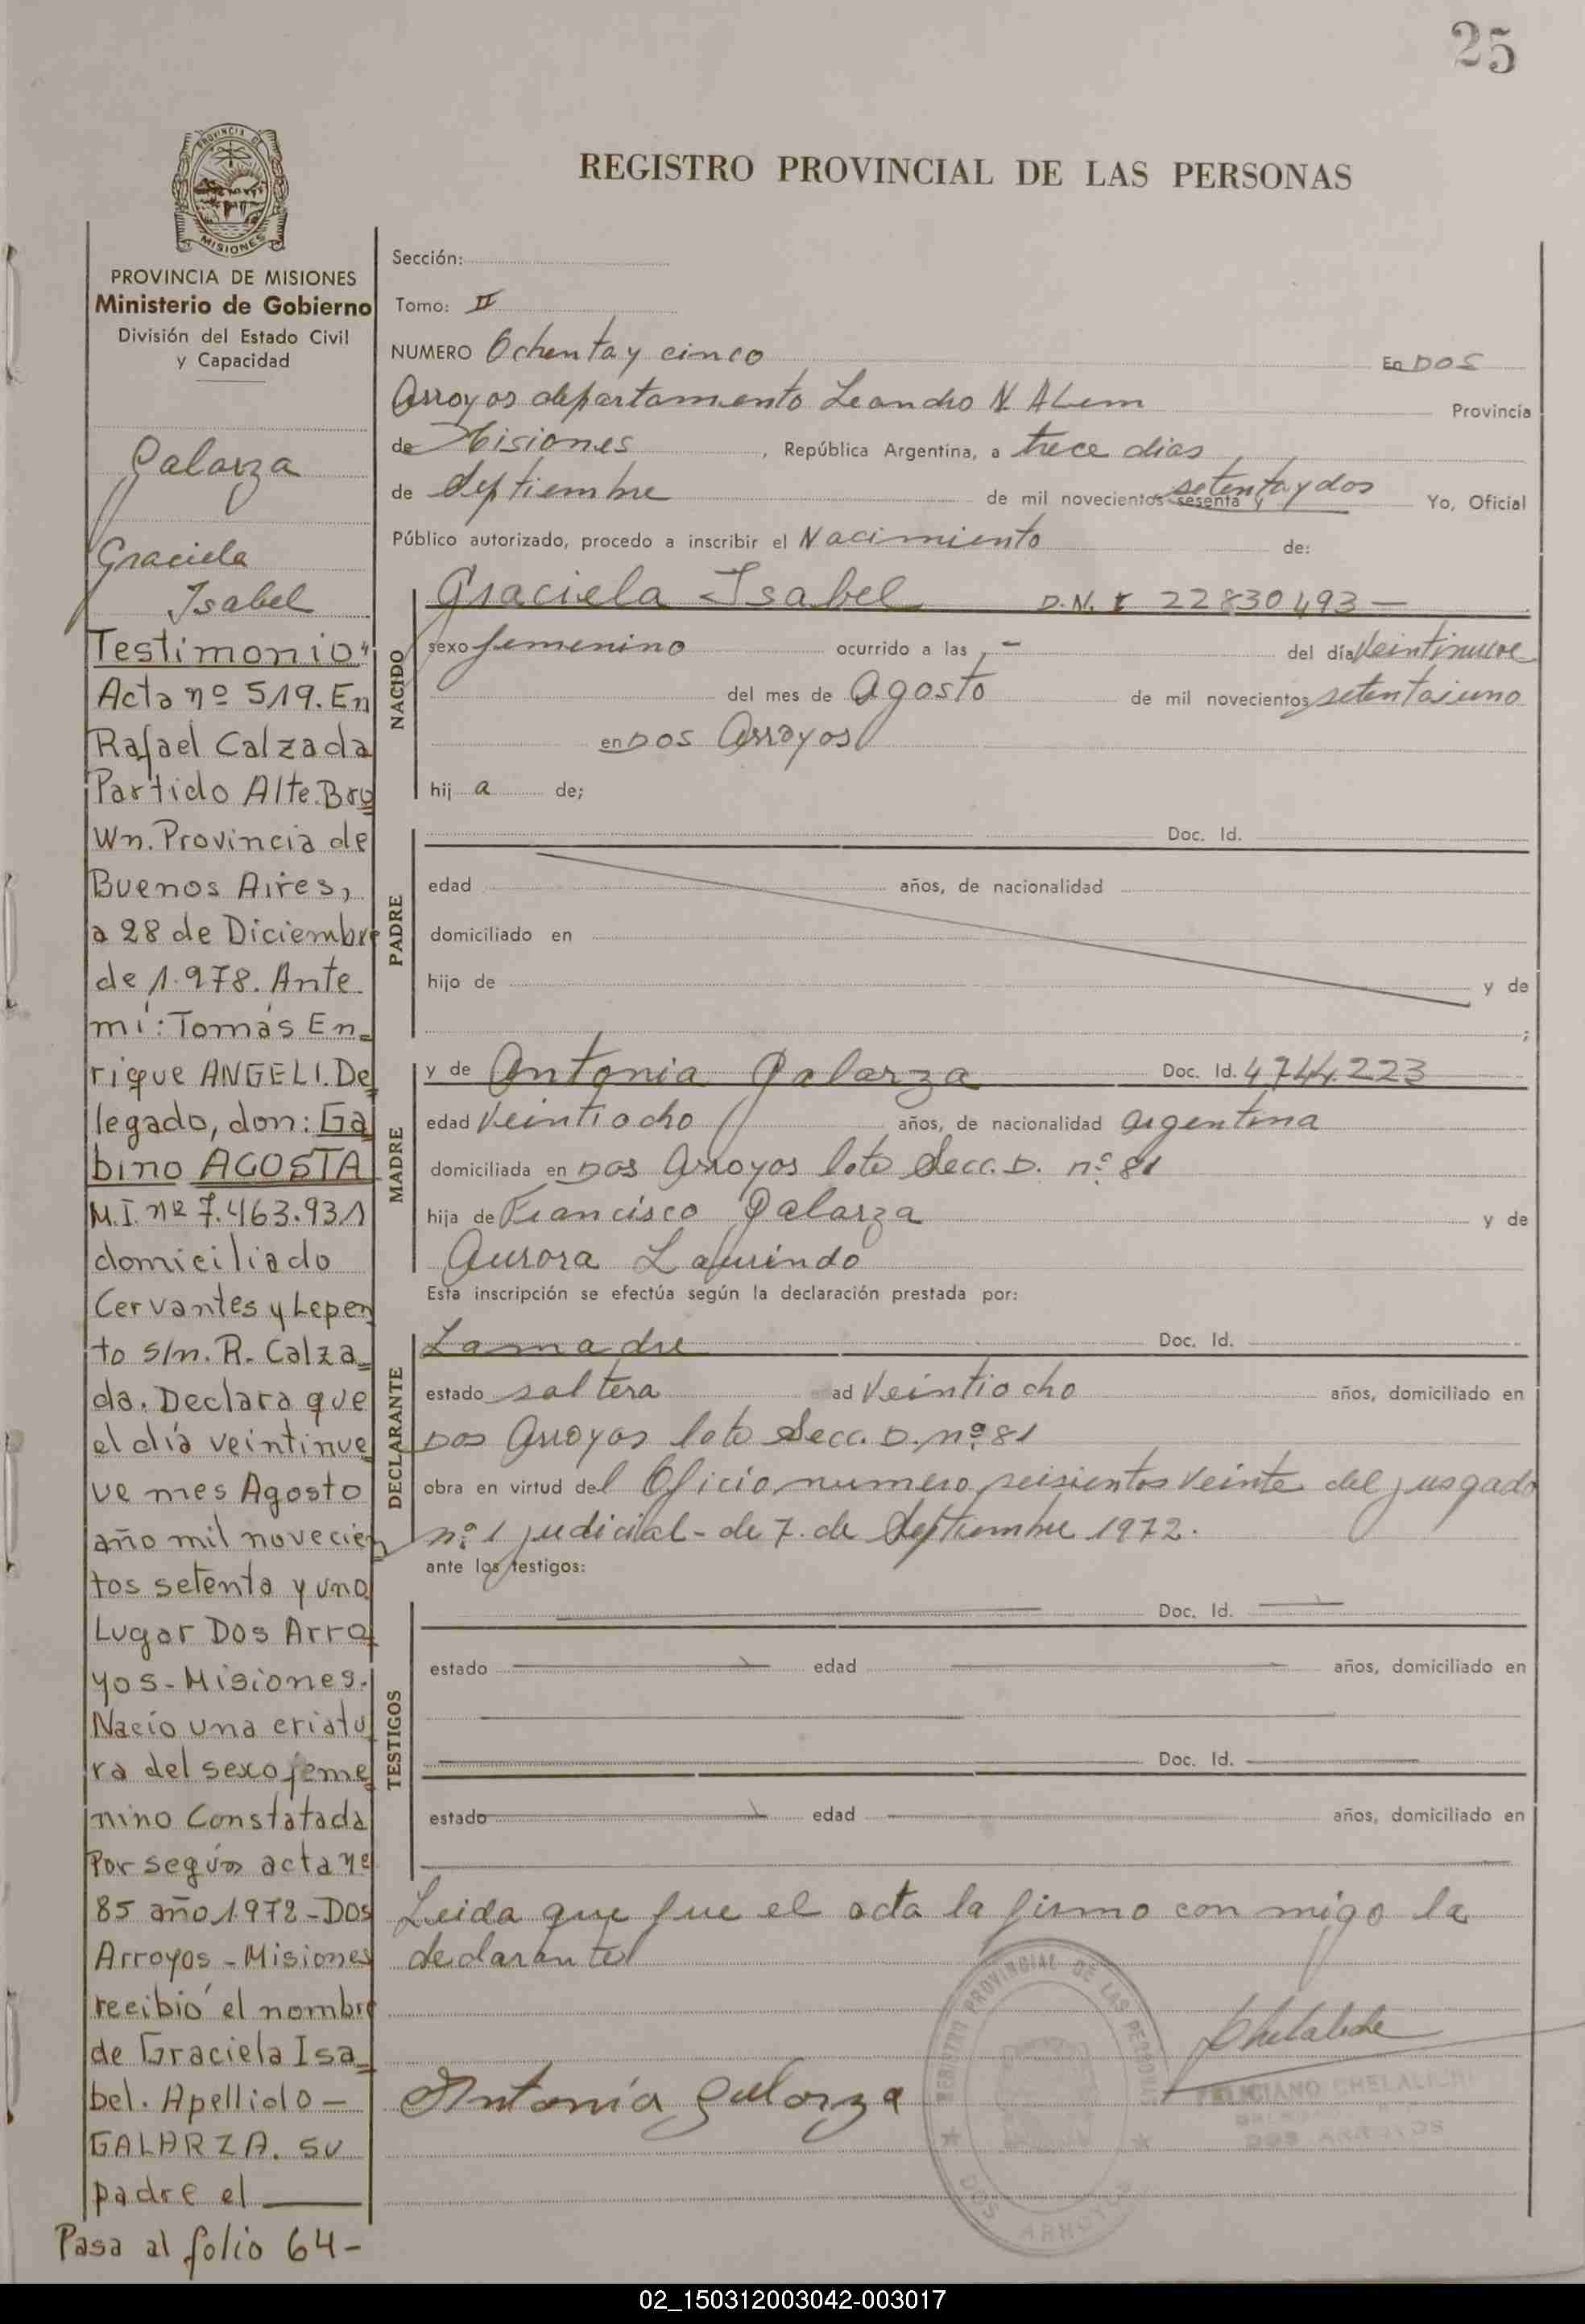 25
REGISTRO PROVINCIAL DE LAS PERSONAS
PROVINCIA DE MISIONES
Ministerio de Gobierno
División del Estado Civil
y Capacidad
Galarza
Graciela
Isabel
Testimonio"
Acta nº 519. En
Rafael Calzada
Partido Alte. Bro
Wn. Provincia de
Buenos Aires,
a 28 de Diciembre
de 1.978. Ante
mí: Tomás En_
rique ANGELI. De
legado, don: Ga
bino AGOSTA
M.I. nº 7.463.931
domiciliado
Cervantes y Lepen
to s/n. R. Calza_
da. Declara que
el día veintinue
ve mes Agosto
año mil novecien
tos setenta y uno
Lugar Dos Arro
yos - Misiones.
Nacío una criatu
ra del sexo feme
nino Constatada
Por según acta nº
85 año 1972 - Dos
Arroyos - Misiones
recibió el nombre
de Graciela Isa_
bel. Apellido -
GALARZA. su
padre el
Pasa al folio 64 -
Sección:
Tomo: II
NUMERO Ochenta y cinco En DOS
Arroyos departamento Leandro N. ALem Provincia
de Misiones, República Argentina, a trece dias
de Septiembre de mil novecientos sesenta y setenta y dos Yo, Oficial
Público autorizado, procedo a inscribir el Nacimiento de:
NACIDO
Graciela Isabel D.N.I 22830493 -
sexo femenino ocurrido a las - del día Veintinueve
del mes de Agosto de mil novecientos setentaiuno
en DOS Arroyos
hij a de;
PADRE
Doc. Id.
edad años, de nacionalidad
domiciliado en
hijo de y de
;
MADRE
y de Antonia Galarza Doc. Id. 4744.223
edad Veintiocho años, de nacionalidad argentina
domiciliada en DOS Arroyos lote Secc. D. nº 81
hija de Francisco Galarza y de
Aurora Laurindo
Esta inscripción se efectúa según la declaración prestada por:
DECLARANTE
La madre Doc. Id.
estado soltera ad Veintiocho años, domiciliado en
DOS Arroyos lote Secc. D. nº 81
obra en virtud del Oficio numero seisientos Veinte del jusgado
nº 1 judicial - de 7. de Septiembre 1972.
ante los testigos:
TESTIGOS
Doc. Id.
estado edad años, domiciliado en
Doc. Id.
estado edad años, domiciliado en
Leida que fue el acta la firmo con migo la
declarante
REGISTRO PROVINCIAL DE LAS PERSONAS
DOS ARROYOS
Chelaliche
FELICIANO CHELALICHE
DOS ARROYOS
Antonia Galarza
02_150312003042-003017